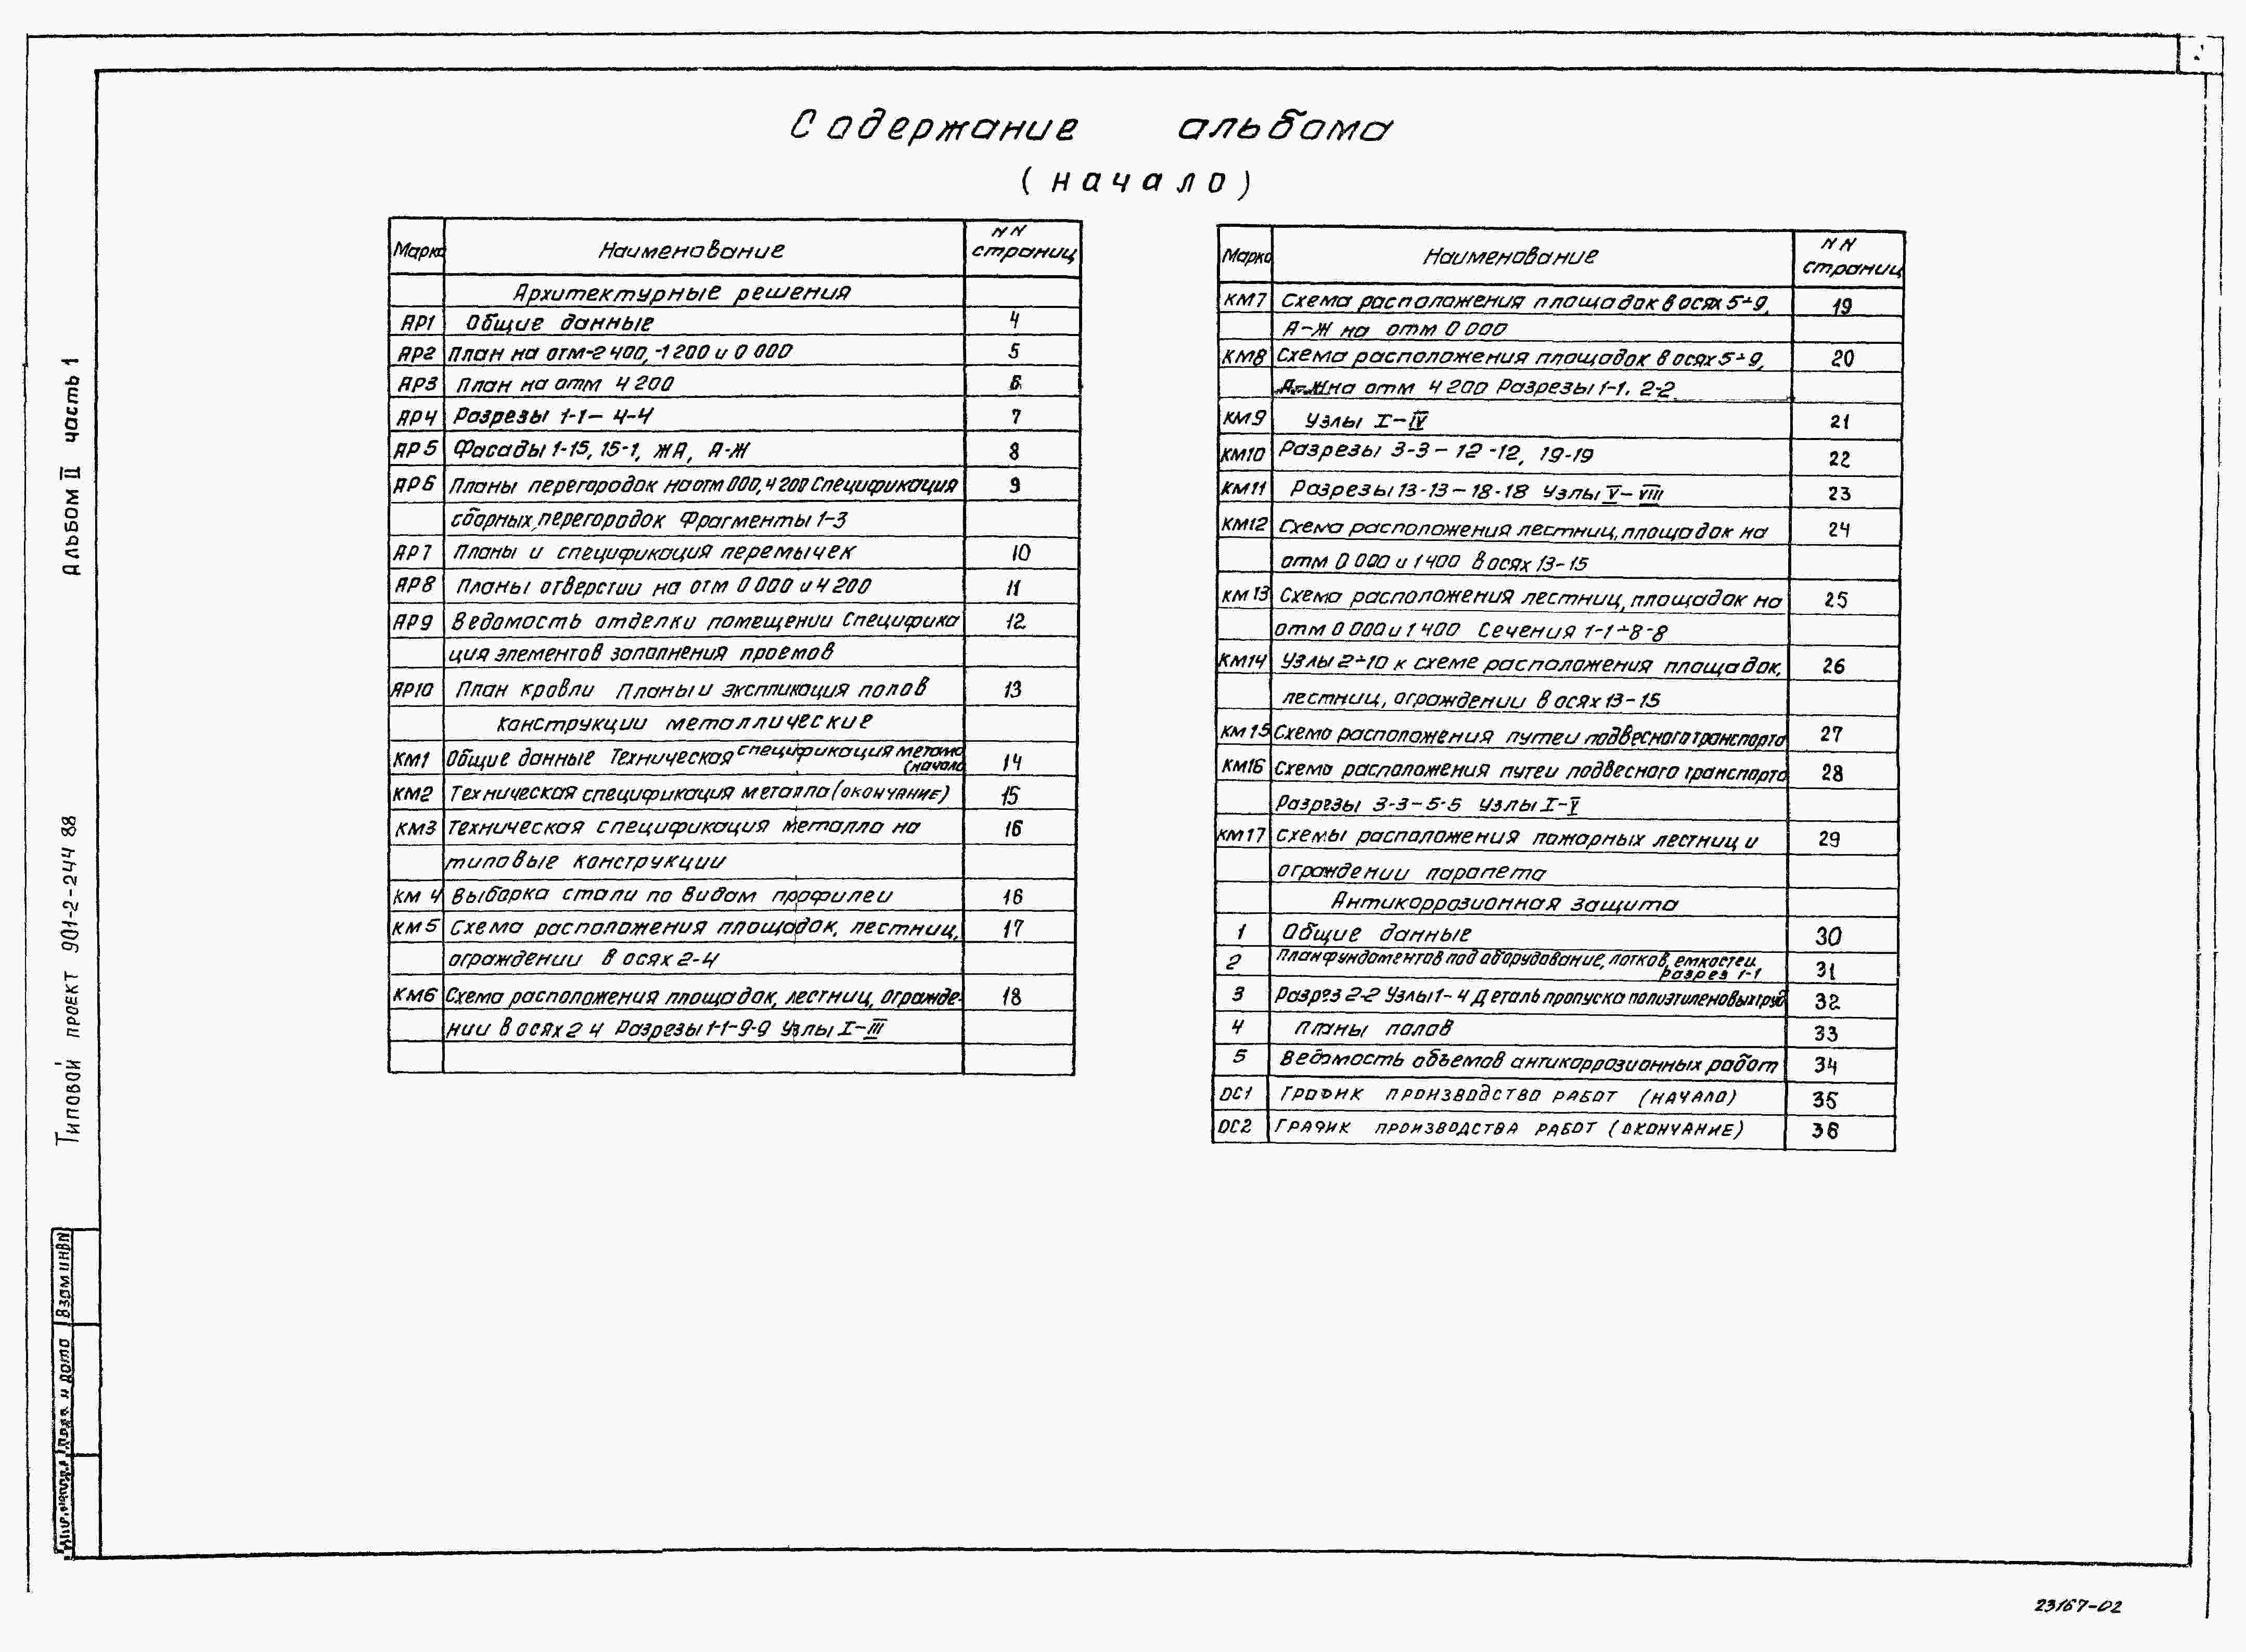 Содержание альбома
(начало)
Марка Наименование NN страниц
Архитектурные решения
АР1 Общие данные 4
АР2 План на отм-2 400, -1 200 и 0 000 5
АР3 План на отм 4 200 6
АР4 Разрезы 1-1 – 4-4 7
АР5 Фасады 1-15, 15-1, ЖА, А-Ж 8
АР6 Планы перегородок на отм 000, 4 200 Спецификация 9
сборных перегородок Фрагменты 1-3
АР7 Планы и спецификация перемычек 10
АР8 Планы отверстии на отм 0 000 и 4 200 11
АР9 Ведомость отделки помещении Специфика 12
ция элементов заполнения проемов
АР10 План кровли Планы и экспликация полов 13
Конструкции металлические
КМ1 Общие данные Техническая спецификация метала (начало 14
КМ2 Техническая спецификация металла (окончание) 15
КМ3 Техническая спецификация металла на 16
типовые конструкции
КМ 4 Выборка стали по видам профилеи 16
КМ5 Схема расположения площадок, лестниц, 17
ограждении в осях 2-4
КМ6 Схема расположения площадок, лестниц, огражде- 18
нии в осях 2 4 Разрезы 1-1-9-9 Узлы I-III
Марка Наименование NN страниц
КМ7 Схема расположения площадок в осях 5÷9, 19
А-Ж на отм 0 000
КМ8 Схема расположения площадок в осях 5÷9, 20
А-Ж на отм 4 200 Разрезы 1-1, 2-2
КМ9 Узлы I-IV 21
КМ10 Разрезы 3-3 – 12-12, 19-19 22
КМ11 Разрезы 13-13 – 18-18 Узлы V-VIII 23
КМ12 Схема расположения лестниц, площадок на 24
отм 0 000 и 1 400 в осях 13-15
КМ13 Схема расположения лестниц, площадок на 25
отм 0 000 и 1 400 Сечения 1-1÷8-8
КМ14 Узлы 2÷10 к схеме расположения площадок, 26
лестниц, ограждении в осях 13-15
КМ15 Схема расположения путеи подвесного транспорта 27
КМ16 Схема расположения путеи подвесного транспорта 28
Разрезы 3-3-5-5 Узлы I-V
КМ17 Схемы расположения пожарных лестниц и 29
ограждении парапета
Антикоррозионная защита
1 Общие данные 30
2 План фундаментов под оборудование, лотков, емкостеи. разрез 1-1 31
3 Разрез 2-2 Узлы 1-4 Деталь пропуска полиэтиленовых труб 32
4 Планы полов 33
5 Ведомость объемов антикоррозионных работ 34
ОС1 График производства работ (начало) 35
ОС2 График производства работ (окончание) 36
Альбом II часть 1
Типовой проект 901-2-244 88
Взам инв N
Подп. и дата
23167-02